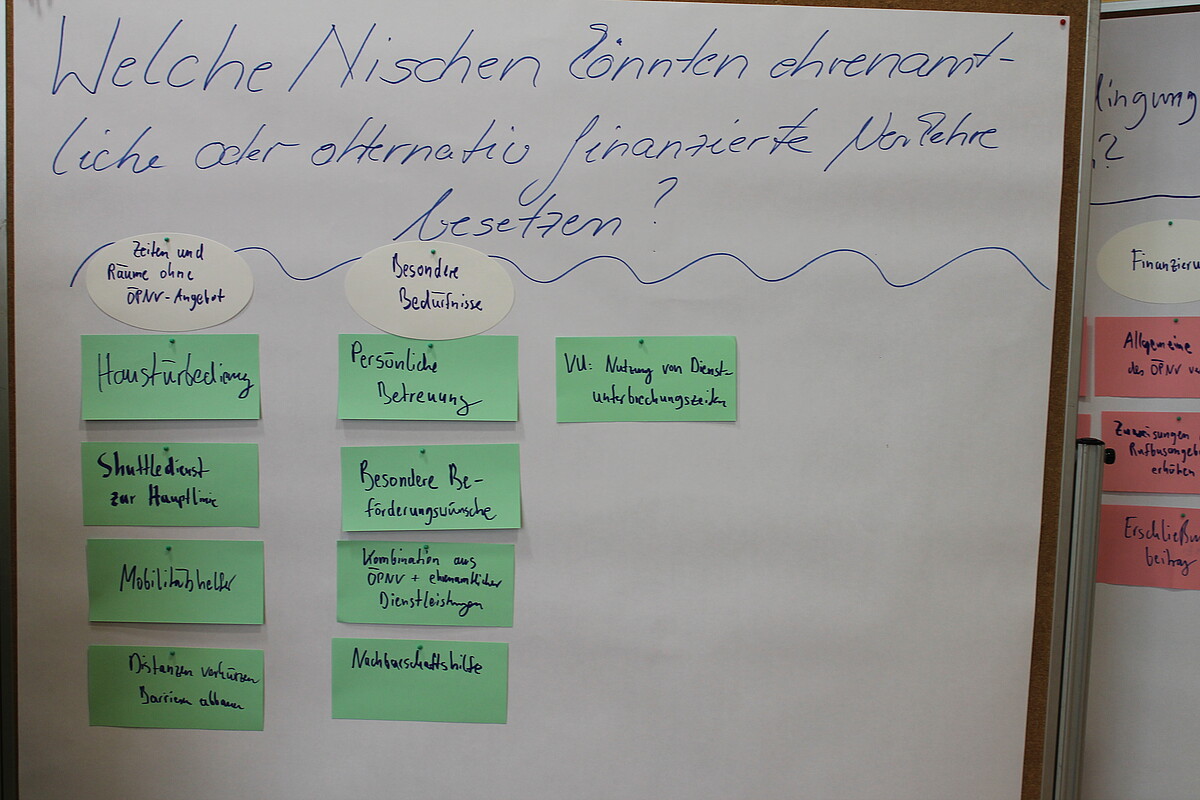 Welche Nischen könnten ehrenamt-
liche oder alternativ finanzierte Verkehre
besetzen?
Zeiten und
Räume ohne
ÖPNV-Angebot
Haustürbedienung
Shuttledienst
zur Hauptlinie
Mobilitätshelfer
Distanzen verkürzen
Barrieren abbauen
Besondere
Bedürfnisse
Persönliche
Betreuung
Besondere Be-
förderungswünsche
Kombination aus
ÖPNV + ehrenamtlicher
Dienstleistungen
Nachbarschaftshilfe
VU: Nutzung von Dienst-
unterbrechungszeiten
?
Allgemeine
des ÖPNV
Zuweisungen
erhöhen
beitrag